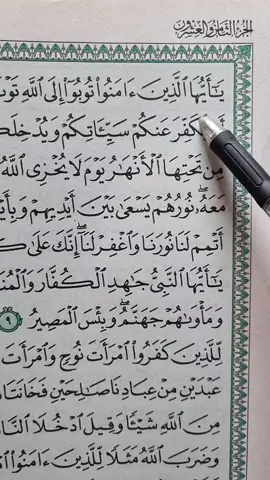 الجزء الثامن والعشرون
يَٰٓأَيُّهَا ٱلَّذِينَ ءَامَنُوا۟ تُوبُوٓا۟ إِلَى ٱللَّهِ
يُكَفِّرَ عَنكُمْ سَيِّـَٔاتِكُمْ
مِن تَحْتِهَا ٱلْأَنْهَٰرُ يَوْمَ لَا يُخْزِى ٱللَّهُ
مَعَهُۥ ۖ نُورُهُمْ يَسْعَىٰ بَيْنَ أَيْدِيهِمْ
أَتْمِمْ لَنَا نُورَنَا وَٱغْفِرْ لَنَآ ۖ إِنَّكَ عَلَىٰ
يَٰٓأَيُّهَا ٱلنَّبِىُّ جَٰهِدِ ٱلْكُفَّارَ
وَمَأْوَىٰهُمْ جَهَنَّمُ ۖ وَبِئْسَ ٱلْمَصِيرُ ٩
لِّلَّذِينَ كَفَرُوا۟ ٱمْرَأَتَ نُوحٍ وَٱمْرَأَتَ
عَبْدَيْنِ مِنْ عِبَادِنَا صَٰلِحَيْنِ
مِنَ ٱللَّهِ شَيْـًٔا وَقِيلَ ٱدْخُلَا
وَضَرَبَ ٱللَّهُ مَثَلًا لِّلَّذِينَ ءَامَنُوا۟